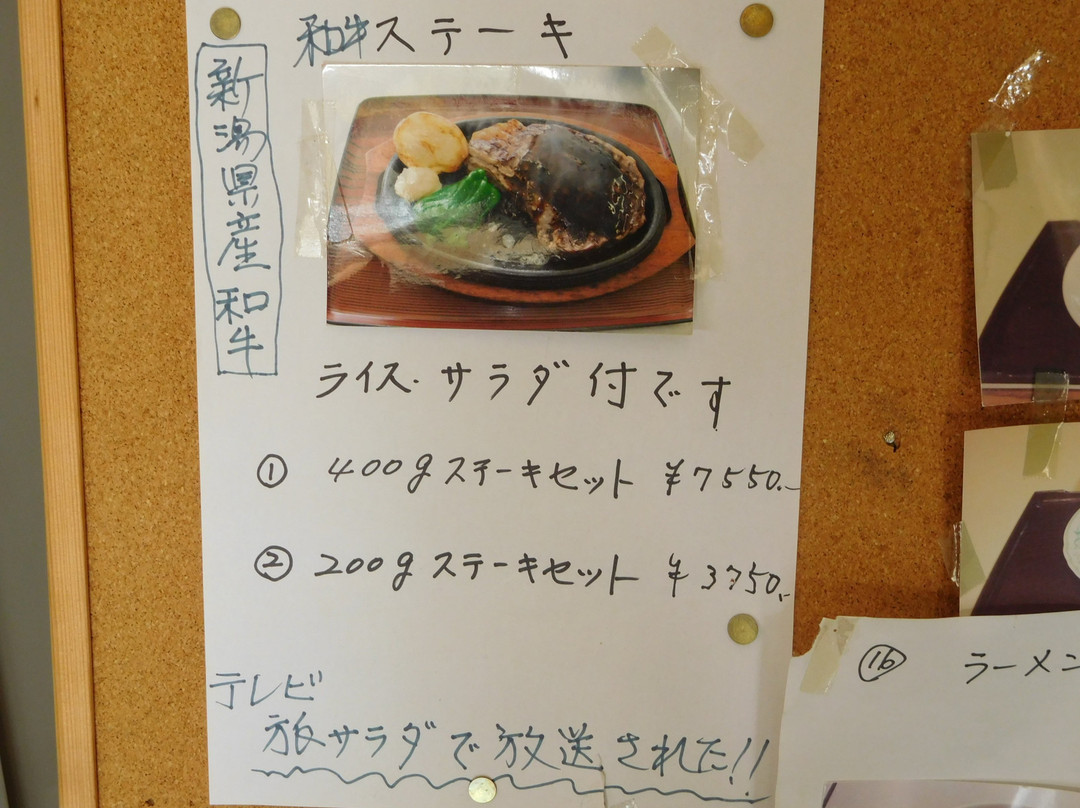 和牛ステーキ
新潟県産和牛
ライス・サラダ付です
① 400gステーキセット ¥7550.-
② 200gステーキセット ¥3750.-
テレビ
旅サラダで放送された!!
⑯ ラーメン